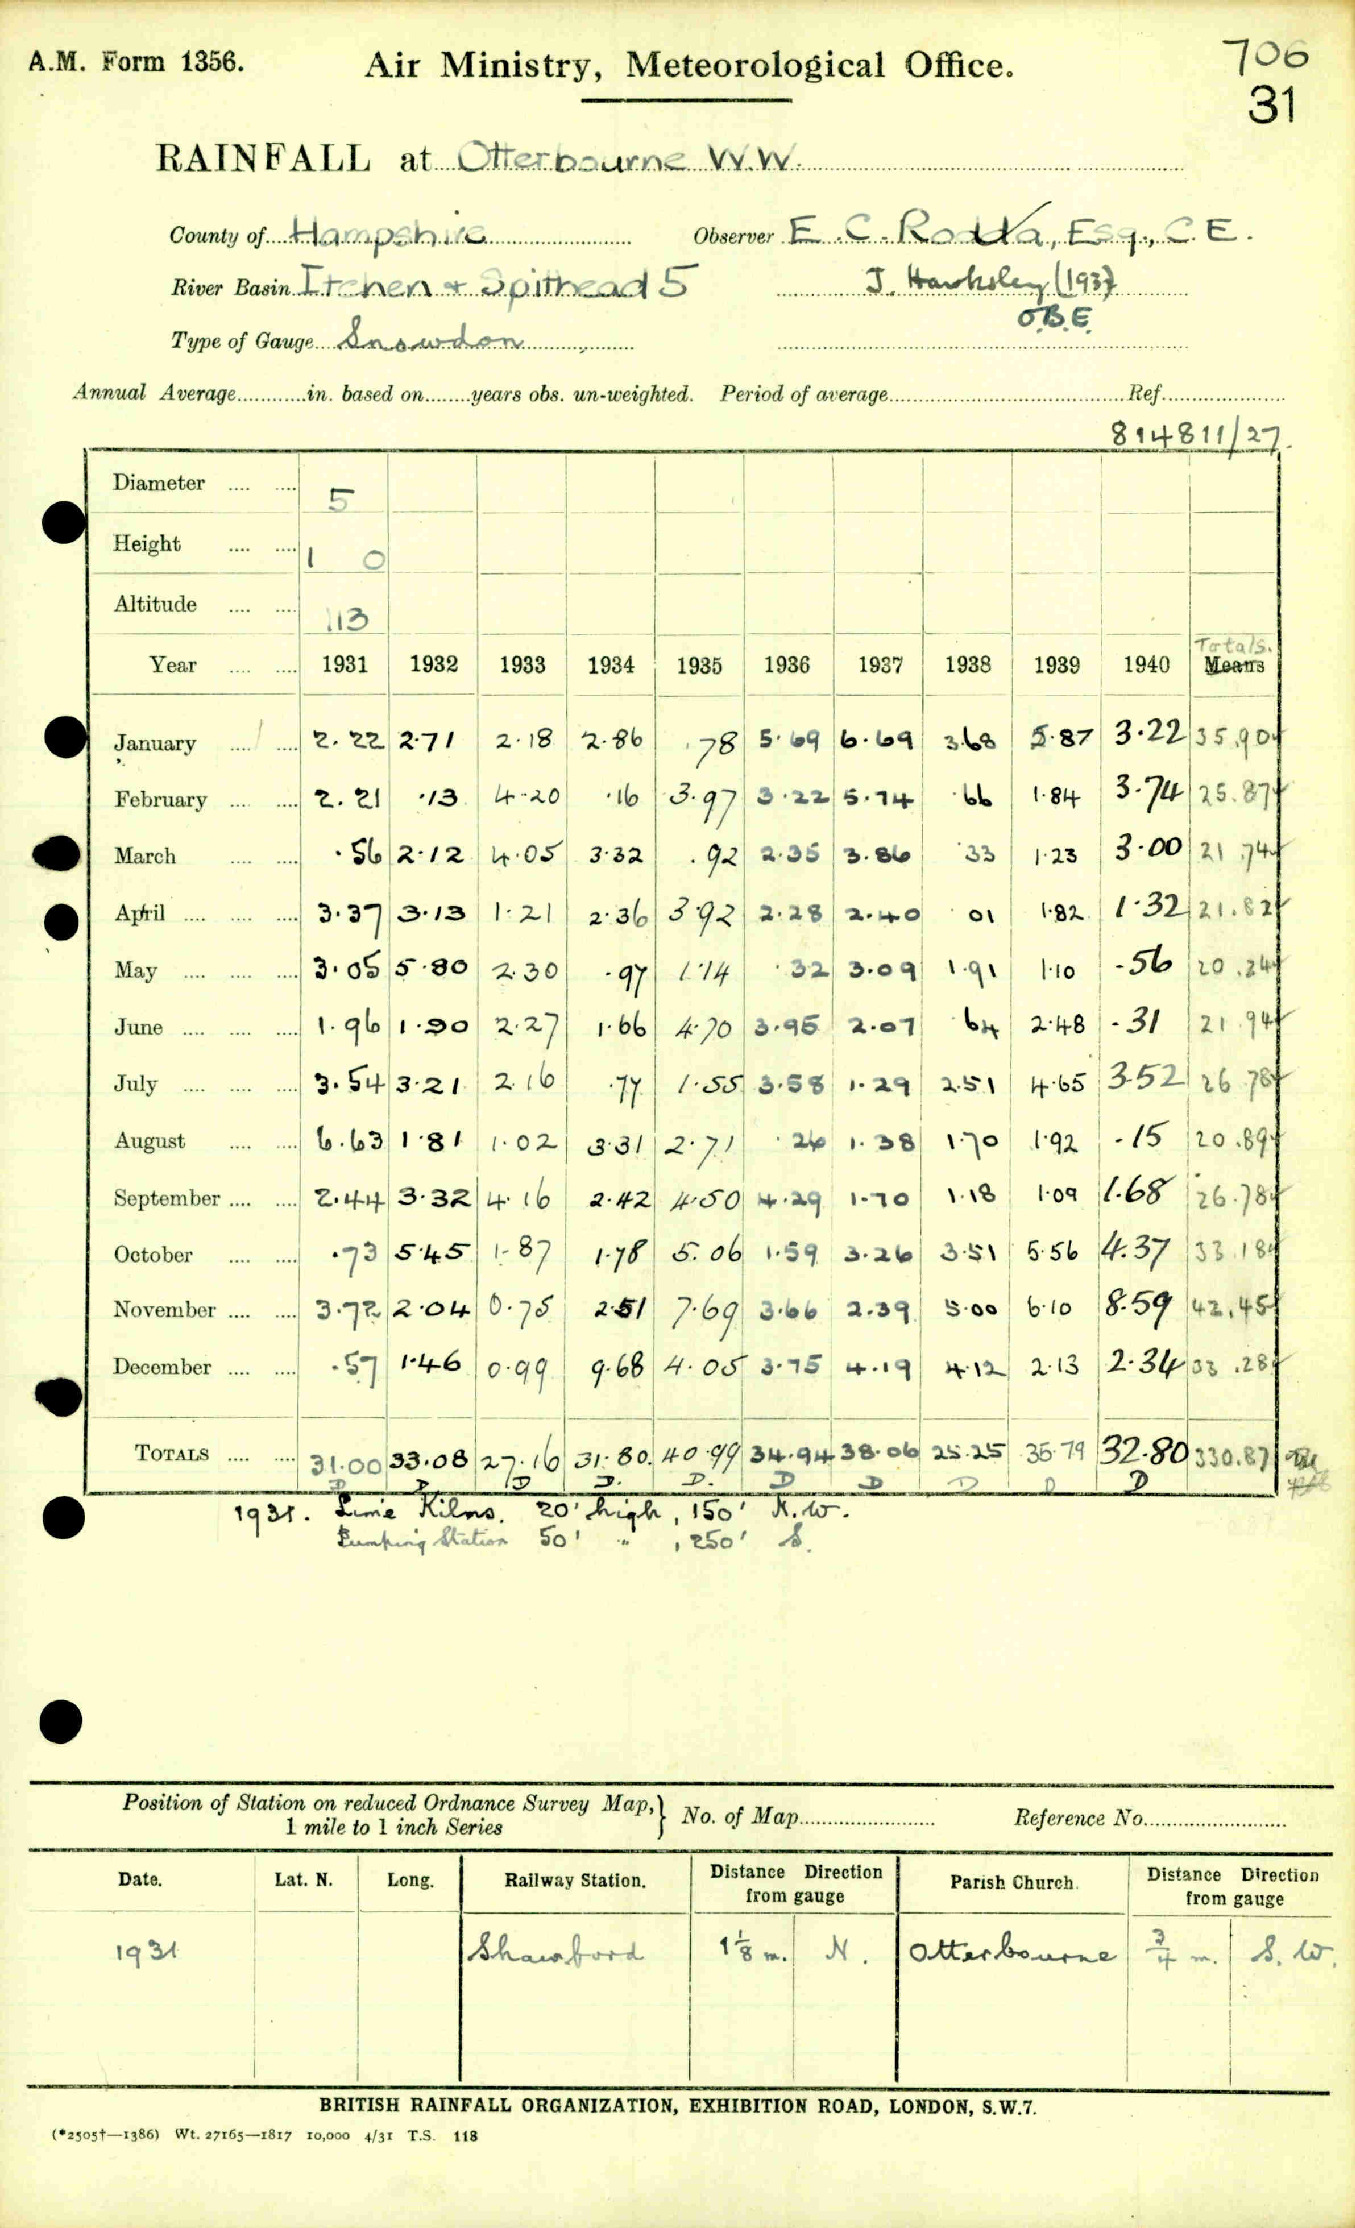 A.M. Form 1356.
Air Ministry, Meteorological Office.
706
31
RAINFALL at Otterbourne W.W.
County of Hampshire Observer E. C. Rodda, Esq., C.E.
River Basin Itchen + Spithead 5 J. Hawksley (1937)
O.B.E.
Type of Gauge Snowdon
Annual Average............in. based on........years obs. un-weighted. Period of average.......... Ref..........
814811/27.
Diameter .... .... 5
Height .... .... 1 0
Altitude .... .... 113
Totals.
Year .... .... 1931 1932 1933 1934 1935 1936 1937 1938 1939 1940 Means
January .... .... 2.22 2.71 2.18 2.86 .78 5.69 6.69 3.68 5.87 3.22 35.90
February .... .... 2.21 .13 4.20 .16 3.97 3.22 5.74 .66 1.84 3.74 25.87
March .... .... .56 2.12 4.05 3.32 .92 2.35 3.86 .33 1.23 3.00 21.74
April .... .... .... 3.37 3.13 1.21 2.36 3.92 2.28 2.40 01 1.82 1.32 21.82
May .... .... .... 3.05 5.80 2.30 .97 1.14 .32 3.09 1.91 1.10 .56 20.24
June .... .... .... 1.96 1.90 2.27 1.66 4.70 3.95 2.07 64 2.48 .31 21.94
July .... .... .... 3.54 3.21 2.16 .77 1.55 3.58 1.29 2.51 4.65 3.52 26.78
August .... .... 6.63 1.81 1.02 3.31 2.71 .26 1.38 1.70 1.92 .15 20.89
September .... .... 2.44 3.32 4.16 2.42 4.50 4.29 1.70 1.18 1.09 1.68 26.78
October .... .... .73 5.45 1.87 1.78 5.06 1.59 3.26 3.51 5.56 4.37 33.18
November .... .... 3.72 2.04 0.75 2.51 7.69 3.66 2.39 5.00 6.10 8.59 42.45
December .... .... .57 1.46 0.99 9.68 4.05 3.75 4.19 4.12 2.13 2.34 33.28
TOTALS .... .... 31.00 33.08 27.16 31.80. 40.99 34.94 38.06 25.25 35.79 32.80 330.87
D D D D. D. D D D D D
1931. Lime Kilns. 20' high, 150' N.W.
Pumping Station 50' " , 250' S.
Position of Station on reduced Ordnance Survey Map,
1 mile to 1 inch Series } No. of Map.......... Reference No..........
Date. Lat. N. Long. Railway Station. Distance Direction from gauge Parish Church. Distance Direction from gauge
1931 Shawford 1 1/8 m. N. Otterbourne 3/4 m. S.W.
BRITISH RAINFALL ORGANIZATION, EXHIBITION ROAD, LONDON, S.W.7.
(*2505†—1386) Wt. 27165—1817 10,000 4/31 T.S. 118